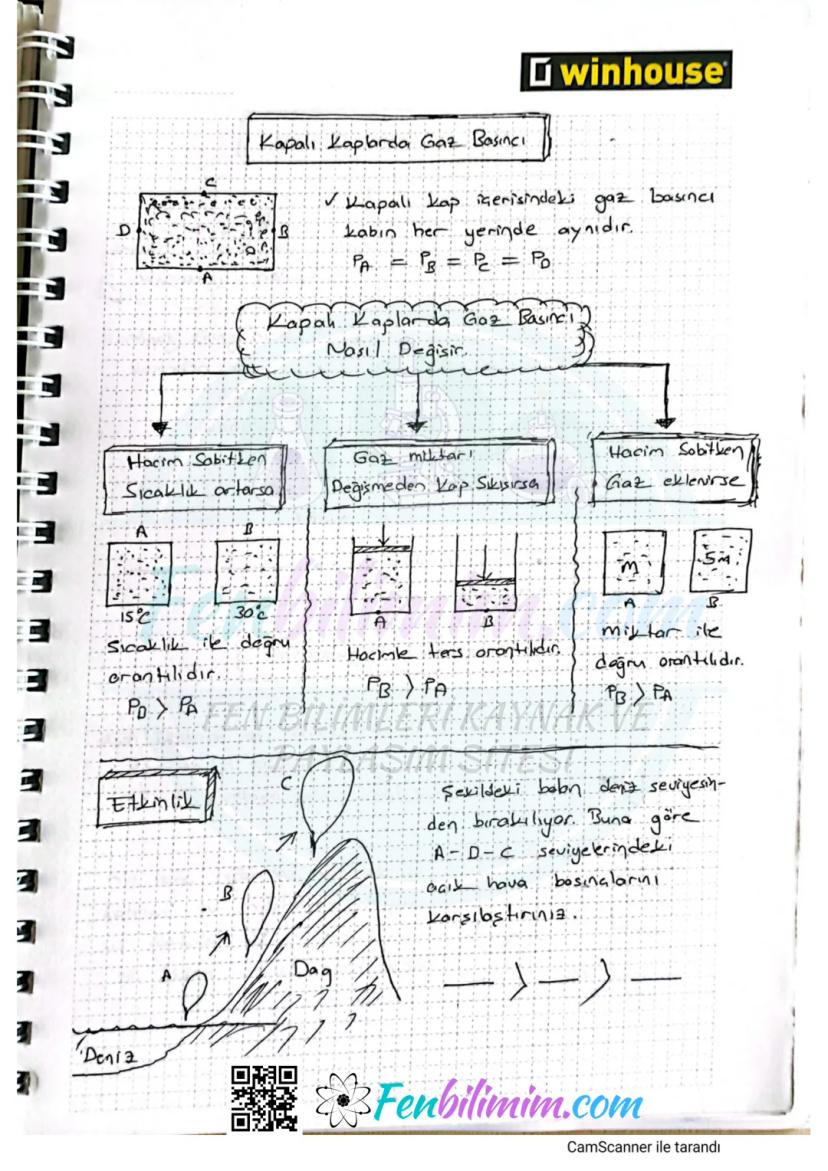 winhouse
Kapalı Kaplarda Gaz Basıncı
C
D
B
A
✓ Kapalı kap içerisindeki gaz basıncı
kabın her yerinde aynıdır.
P_A = P_B = P_C = P_D
Kapalı Kaplarda Gaz Basıncı
Nasıl Değişir.
Hacim Sabitken
Sıcaklık artarsa
A
B
15°C
30°C
Sıcaklık ile doğru
orantılıdır.
P_B > P_A
Gaz miktarı
Değişmeden Kap Sıkışırsa
A
B
Hacimle ters orantılıdır.
P_B > P_A
Hacim Sabitken
Gaz eklenirse
m
5m
A
B
miktar ile
doğru orantılıdır.
P_B > P_A
Fenbilimim.com
FEN BİLİMLERİ KAYNAK VE
PAYLAŞIM SİTESİ
Etkinlik
C
B
A
Dağ
Deniz
Şekildeki balon deniz seviyesin-
den bırakılıyor. Buna göre
A - D - C seviyelerindeki
açık hava basınçlarını
karşılaştırınız.
— > — > —
Fenbilimim.com
CamScanner ile tarandı